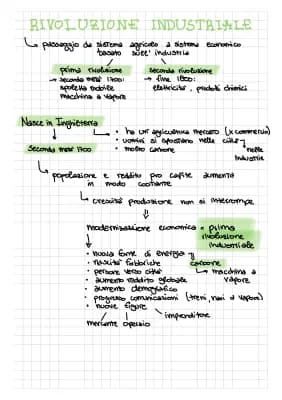 RIVOLUZIONE INDUSTRIALE
passaggio da sistema agricolo a sistema economico
basato sull' industria
prima rivoluzione
seconda rivoluzione
→ seconda metà 1700:
→ fine 1800:
spoletta mobile
elettricità, prodotti chimici
macchina a vapore
Nasce in Inghilterra
seconda metà 1700
• ha un' agricoltura mercato (x commercio)
• uomini si spostano nelle città
• molto carbone
nelle
industrie
popolazione e reddito pro capite aumenta
in modo costante
crescità produzione non si interrompe
modernizzazione economica = prima
rivoluzione
industriale
• nuova forme di energia
carbone
• nascita fabbriche
• persone verso città
macchina a
vapore
• aumento reddito globale
• aumento demografico
• progresso comunicazioni (treni, navi a vapore)
• nuove figure
imprenditore
mercante operaio